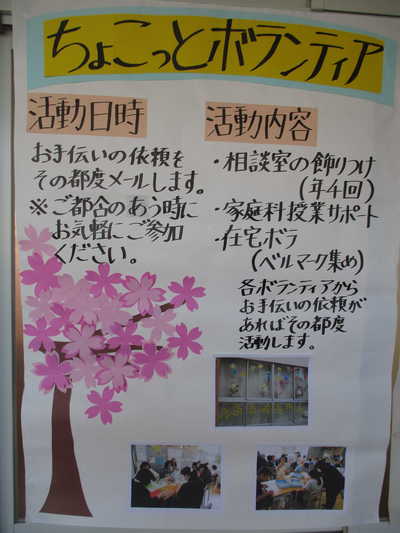 ちょこっとボランティア
活動日時
お手伝いの依頼を
その都度メールします。
※ご都合のあう時に
お気軽にご参加
ください。
活動内容
・相談室の飾りつけ
(年4回)
・家庭科授業サポート
・在宅ボラ
(ベルマーク集め)
各ボランティアから
お手伝いの依頼が
あればその都度
活動します。